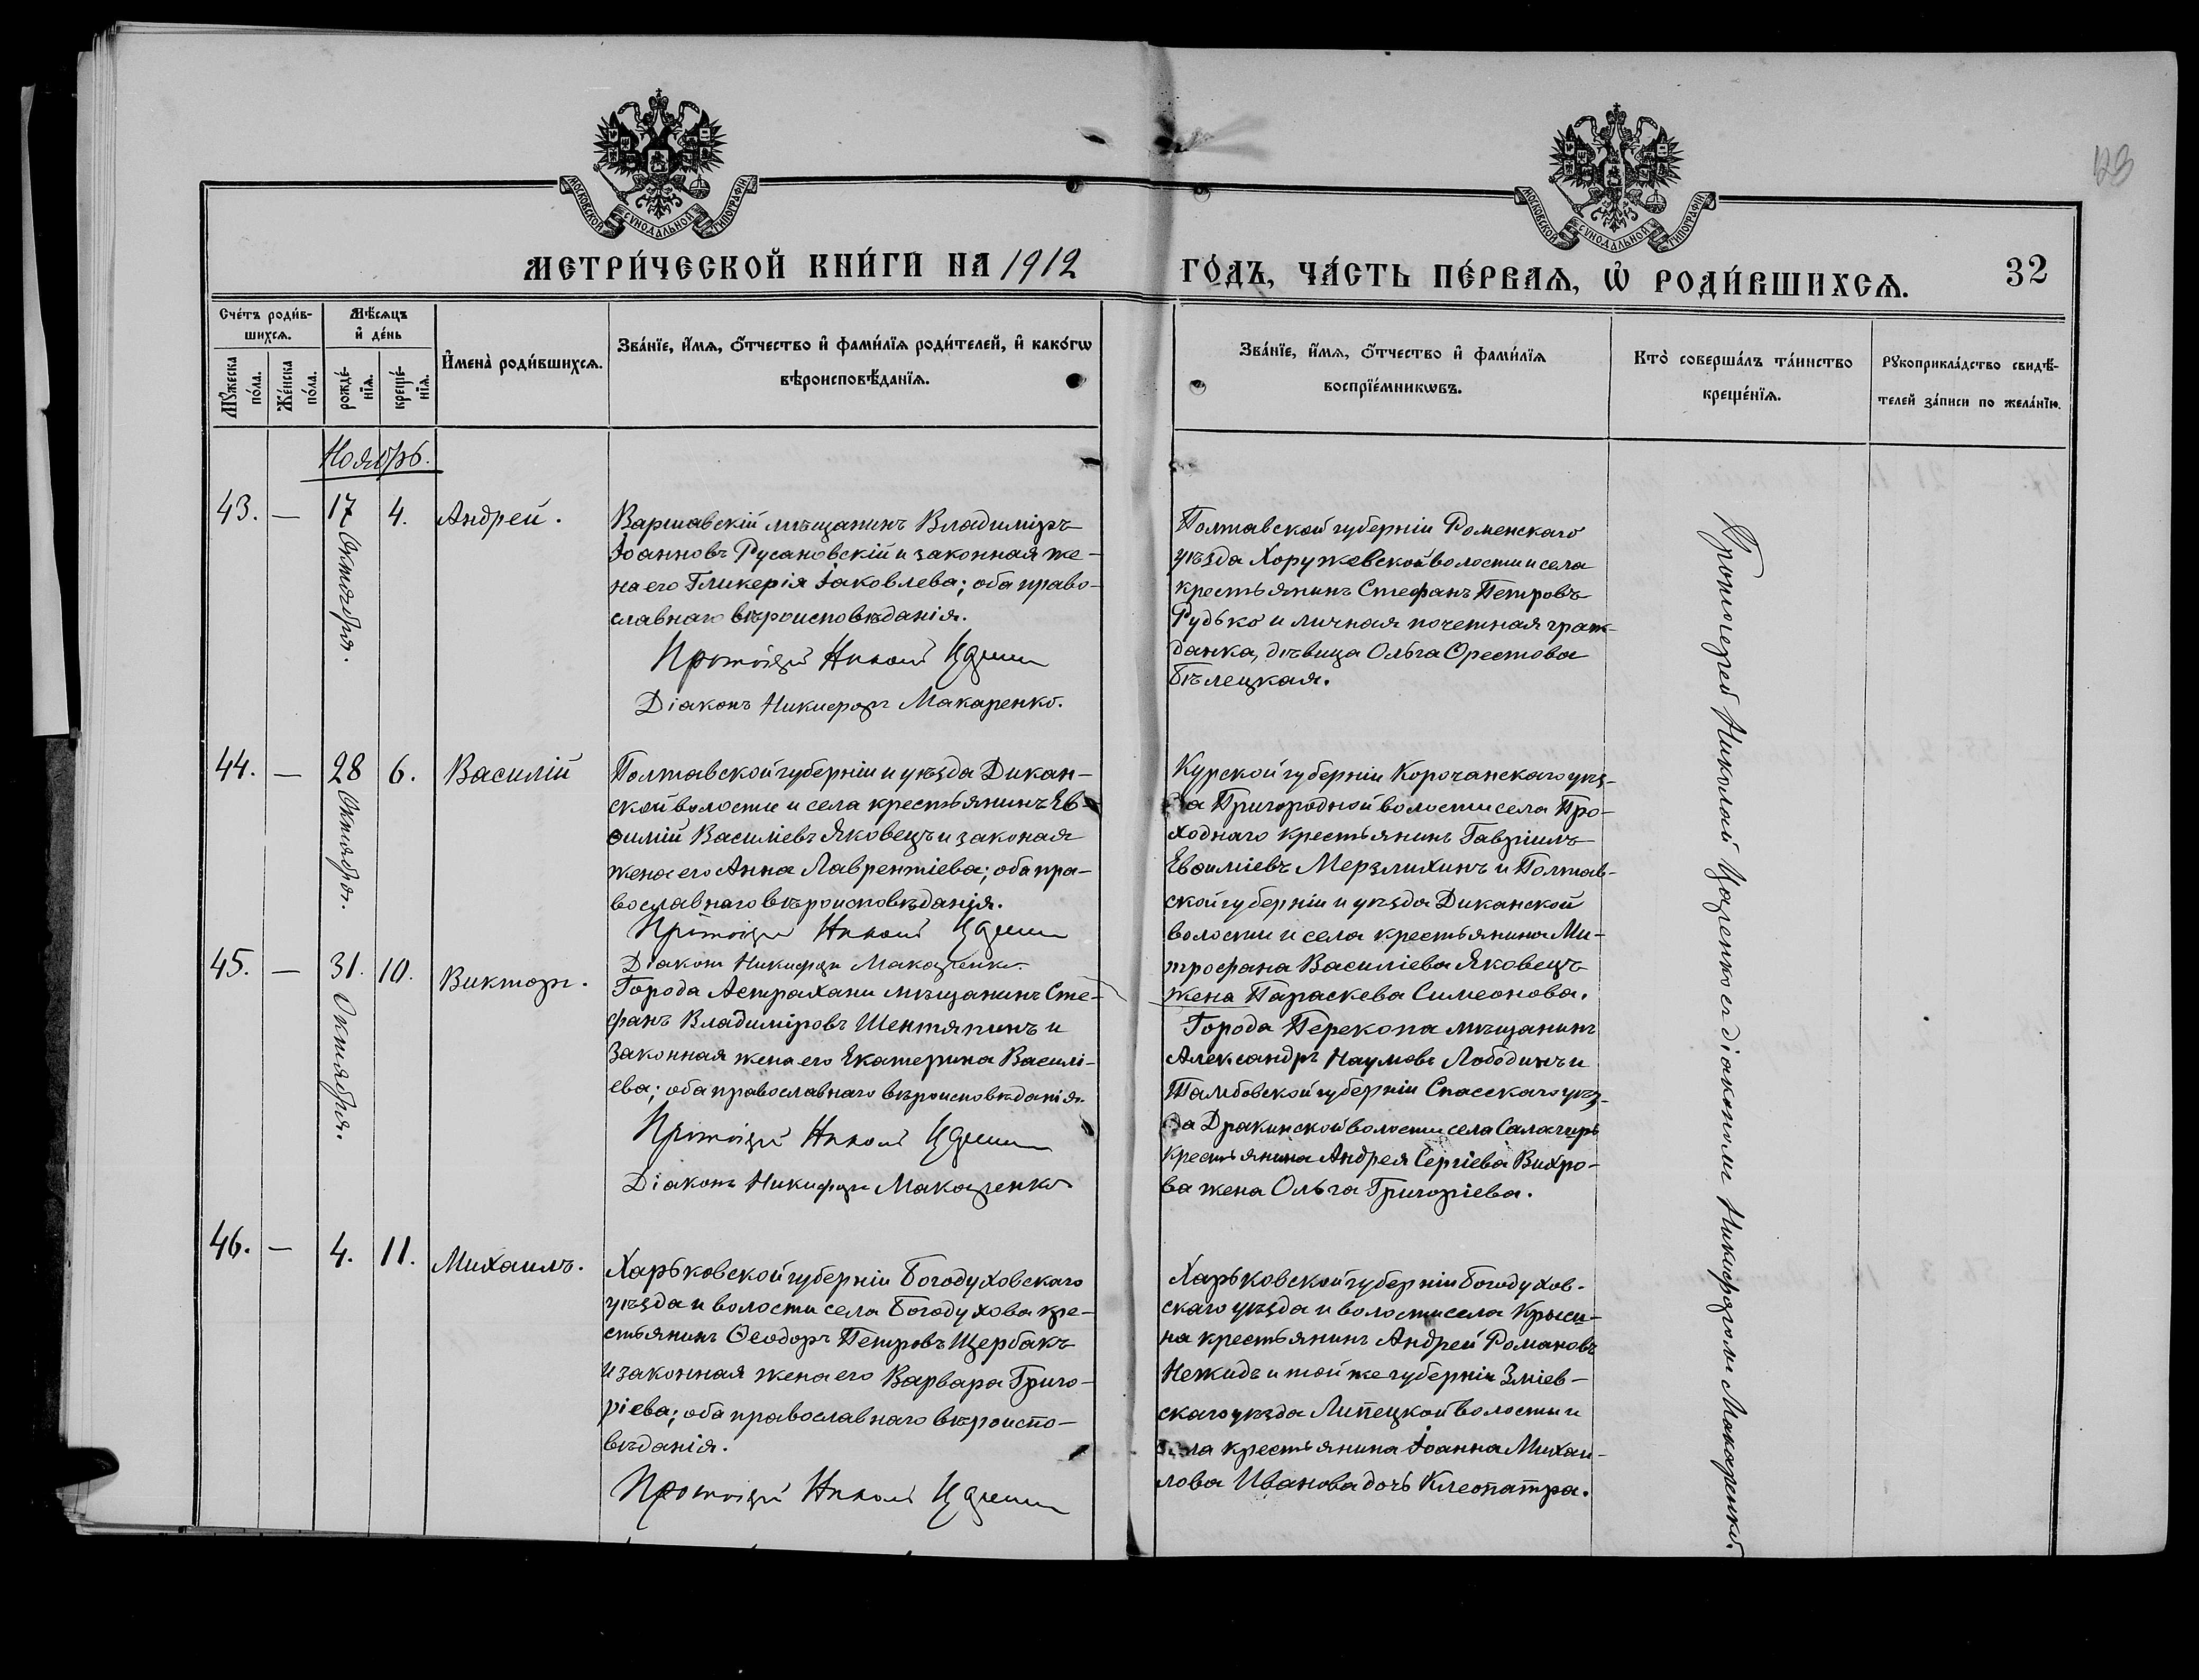 МОСКОВСКОЙ СѴНОДАЛЬНОЙ ТИПОГРАФІИ
МОСКОВСКОЙ СѴНОДАЛЬНОЙ ТИПОГРАФІИ
МЕТРИ́ЧЕСКОЙ КНИ́ГИ НА 1912
ГО́ДЪ, ЧА́СТЬ ПЕ́РВАѦ, Ѡ҆ РОДИ́ВШИХСѦ.
32
Сче́тъ роди́в-
шихсѧ.
Мꙋ́жеска
по́ла.
Же́нска
по́ла.
Мѣ́сѧцъ
и҆ де́нь
рожде́-
нїѧ.
креще́-
нїѧ.
И҆мена̀ роди́вшихсѧ.
Зва́нїе, и҆́мѧ, ѻ҆́тчество и҆ фами́лїѧ роди́телей, и҆ како́гѡ
вѣроисповѣ́данїѧ.
Зва́нїе, и҆́мѧ, ѻ҆́тчество и҆ фами́лїѧ
воспрїе́мникѡвъ.
Кто̀ соверша́лъ та́инство
креще́нїѧ.
Рꙋкоприкла́дство свидѣ́-
телей за́писи по жела́нїю.
Ноябрь.
43. — 17 Октября. 4. Андрей.
Варшавскій мѣщанинъ Владиміръ
Іоанновъ Русановскій и законная же-
на его Гликерія Іаковлева; оба право-
славнаго вѣроисповѣданія.
Протоіерей Николай
Діаконъ Никифоръ Макаренко.
Полтавской губерніи Роменскаго
уѣзда Хоружевской волости и села
крестьянинъ Стефанъ Петровъ
Рудько и личная почетная граж-
данка, дѣвица Ольга Орестова
Бѣлецкая.
44. — 28 Октября. 6. Василій
Полтавской губерніи и уѣзда Дикан-
ской волости и села крестьянинъ Ев-
ѳимій Василіевъ Яковецъ и законая
жена его Анна Лаврентіева; оба пра-
вославнаго вѣроисповѣданія.
Протоіерей Николай
Діаконъ Никифоръ Макаренко.
Курской губерніи Корочанскаго уѣз-
да Пригородной волости села Про-
ходнаго крестьянинъ Гавріилъ
Евѳиміевъ Мерзлихинъ и Полтав-
ской губерніи и уѣзда Диканской
волости и села крестьянина Ми-
трофана Василіева Яковецъ
жена Параскева Симеонова.
45. — 31. Октября. 10. Викторъ.
Города Астрахани мѣщанинъ Сте-
фанъ Владиміровъ Шентяпинъ и
законная жена его Екатерина Василі-
ева; оба православнаго вѣроисповѣданія.
Протоіерей Николай
Діаконъ Никифоръ Макаренко
Города Перекопа мѣщанинъ
Александръ Наумовъ Лободинъ и
Тамбовской губерніи Спасскаго уѣз-
да Дракинской волости села Салазгирь
крестьянина Андрея Сергіева Вихро-
ва жена Ольга Григоріева.
46. — 4. 11. Михаилъ.
Харьковской губерніи Богодуховскаго
уѣзда и волости села Богодухова кре-
стьянинъ Ѳеодоръ Петровъ Щербакъ
и законная жена его Варвара Григо-
ріева; оба православнаго вѣроиспо-
вѣданія.
Протоіерей Николай
Харьковской губерніи Богодухов-
скаго уѣзда и волости села Крыси-
на крестьянинъ Андрей Романовъ
Нежидъ и той же губерніи Зміев-
скаго уѣзда Липецкой волости и
села крестьянина Іоанна Михаи-
лова Иванова дочь Клеопатра.
Протоіерей Николай Цареенко съ діакономъ Никифоромъ Макаренко.